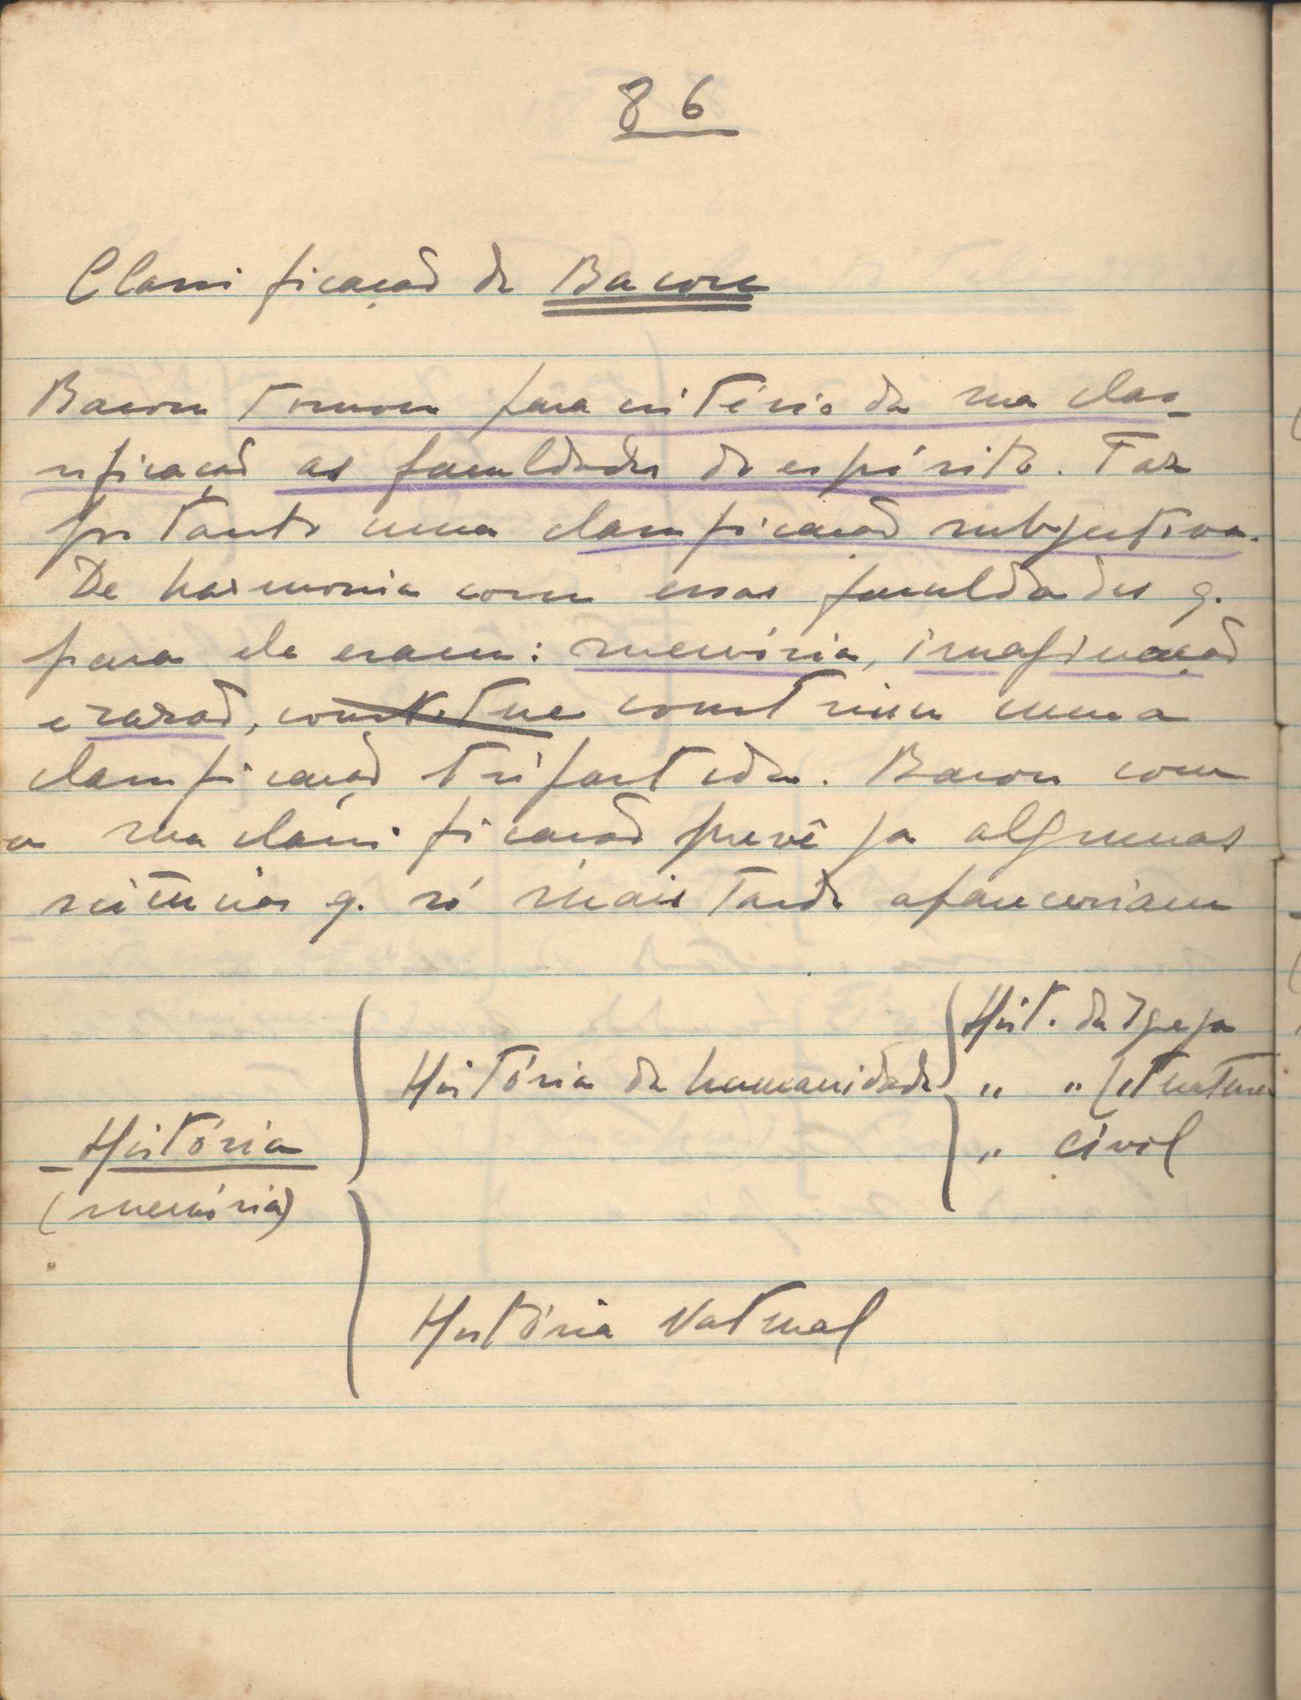 86
Classificação de Bacon
Bacon tomou para critério da sua clas-
sificação as faculdades do espírito. Faz
portanto uma classificação subjectiva.
De harmonia com essas faculdades q.
para ele eram: memória, imaginação
e razão, constitue construiu uma
classificação tripartida. Bacon com
a sua classificação prevê ja algumas
ciências q. só mais tarde apareceriam
Hist. da Igreja
História da humanidade „ „ Literatura
História „ Civil
(memória)
História Natural